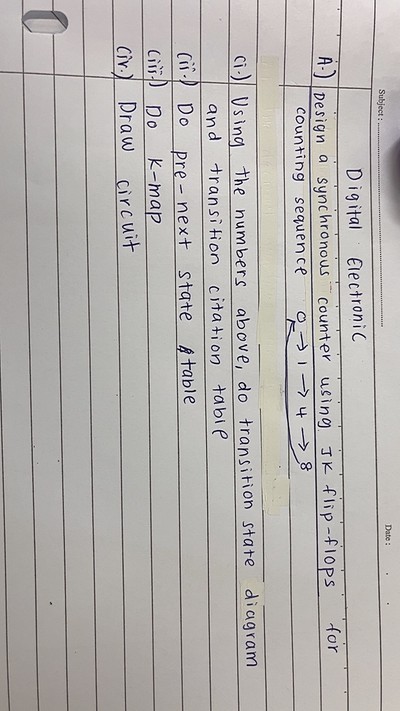 Subject : Date :
Digital Electronic
A.) Design a synchronous counter using JK flip-flops for
counting sequence 0 → 1 → 4 → 8
(i.) Using the numbers above, do transition state diagram
and transition citation table
(ii.) Do pre-next state table
(iii.) Do K-map
(iv.) Draw circuit